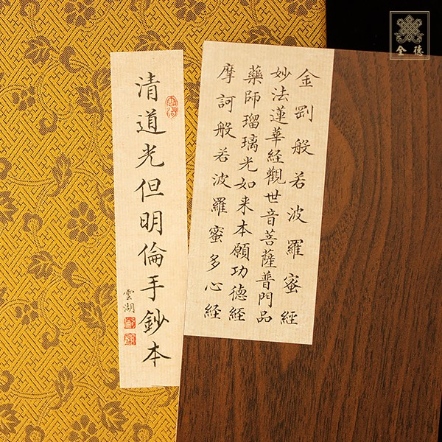 金剛般若波羅蜜經
妙法蓮華經觀世音菩薩普門品
藥師瑠璃光如来本願功德經
摩訶般若波羅蜜多心經
清道光但明倫手鈔本
雲湖